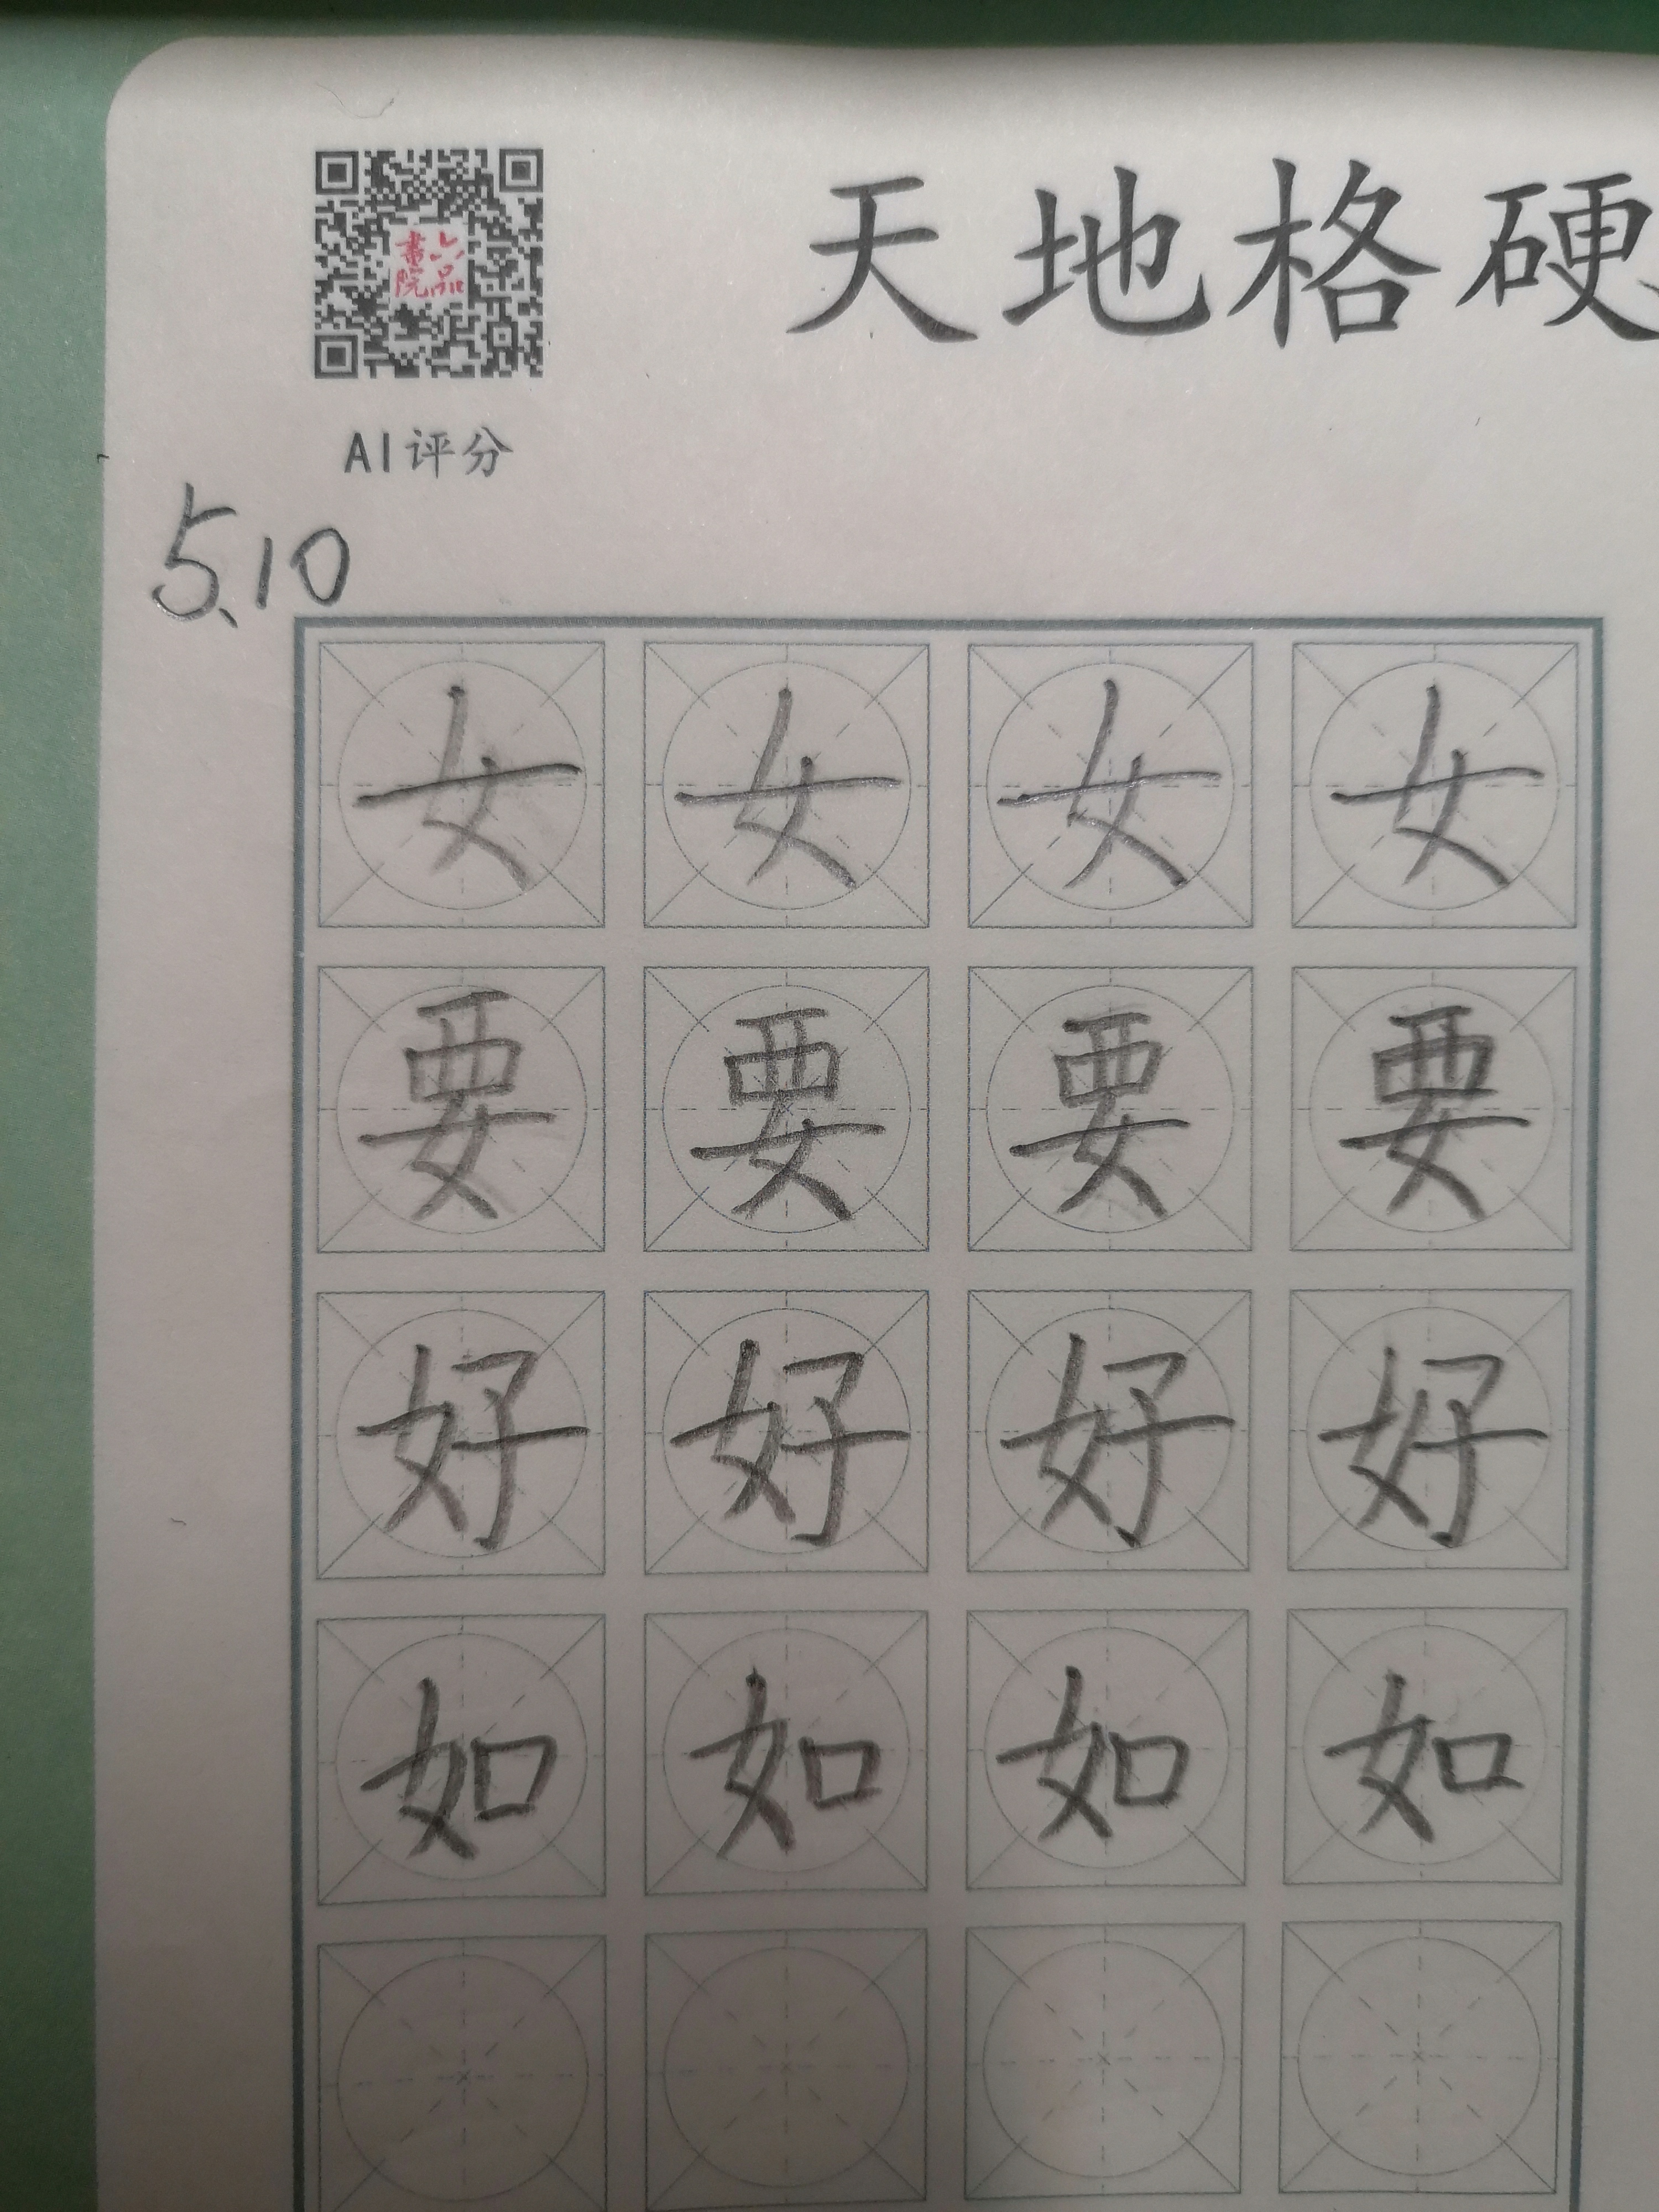 天地格硬
六品
書院
AI评分
5、10
女 女 女 女
要 要 要 要
好 好 好 好
如 如 如 如